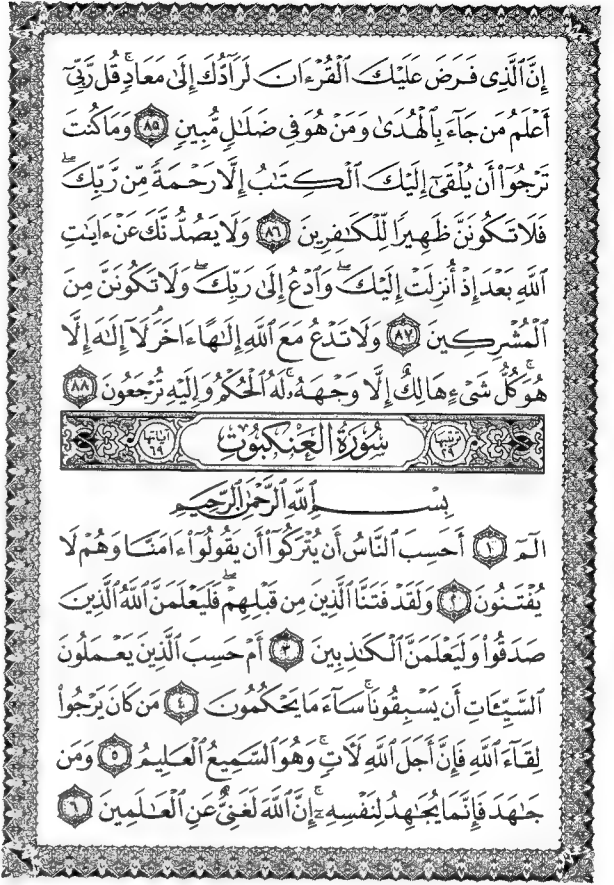 إِنَّ ٱلَّذِى فَرَضَ عَلَيْكَ ٱلْقُرْءَانَ لَرَآدُّكَ إِلَىٰ مَعَادٍۚ قُل رَّبِّىٓ
أَعْلَمُ مَن جَآءَ بِٱلْهُدَىٰ وَمَنْ هُوَ فِى ضَلَـٰلٍ مُّبِينٍ ٨٥ وَمَا كُنتَ
تَرْجُوٓا۟ أَن يُلْقَىٰٓ إِلَيْكَ ٱلْكِتَـٰبُ إِلَّا رَحْمَةً مِّن رَّبِّكَۖ
فَلَا تَكُونَنَّ ظَهِيرًا لِّلْكَـٰفِرِينَ ٨٦ وَلَا يَصُدُّنَّكَ عَنْ ءَايَـٰتِ
ٱللَّهِ بَعْدَ إِذْ أُنزِلَتْ إِلَيْكَۖ وَٱدْعُ إِلَىٰ رَبِّكَۖ وَلَا تَكُونَنَّ مِنَ
ٱلْمُشْرِكِينَ ٨٧ وَلَا تَدْعُ مَعَ ٱللَّهِ إِلَـٰهًا ءَاخَرَۘ لَآ إِلَـٰهَ إِلَّا
هُوَۚ كُلُّ شَىْءٍ هَالِكٌ إِلَّا وَجْهَهُۥۚ لَهُ ٱلْحُكْمُ وَإِلَيْهِ تُرْجَعُونَ ٨٨
ترتيبها ٢٩ سُورَةُ العَنكبُوت آياتها ٦٩
بِسْمِ ٱللَّهِ ٱلرَّحْمَـٰنِ ٱلرَّحِيمِ
الٓمٓ ١ أَحَسِبَ ٱلنَّاسُ أَن يُتْرَكُوٓا۟ أَن يَقُولُوٓا۟ ءَامَنَّا وَهُمْ لَا
يُفْتَنُونَ ٢ وَلَقَدْ فَتَنَّا ٱلَّذِينَ مِن قَبْلِهِمْۖ فَلَيَعْلَمَنَّ ٱللَّهُ ٱلَّذِينَ
صَدَقُوا۟ وَلَيَعْلَمَنَّ ٱلْكَـٰذِبِينَ ٣ أَمْ حَسِبَ ٱلَّذِينَ يَعْمَلُونَ
ٱلسَّيِّـَٔاتِ أَن يَسْبِقُونَاۚ سَآءَ مَا يَحْكُمُونَ ٤ مَن كَانَ يَرْجُوا۟
لِقَآءَ ٱللَّهِ فَإِنَّ أَجَلَ ٱللَّهِ لَـَٔاتٍۚ وَهُوَ ٱلسَّمِيعُ ٱلْعَلِيمُ ٥ وَمَن
جَـٰهَدَ فَإِنَّمَا يُجَـٰهِدُ لِنَفْسِهِۦٓۚ إِنَّ ٱللَّهَ لَغَنِىٌّ عَنِ ٱلْعَـٰلَمِينَ ٦